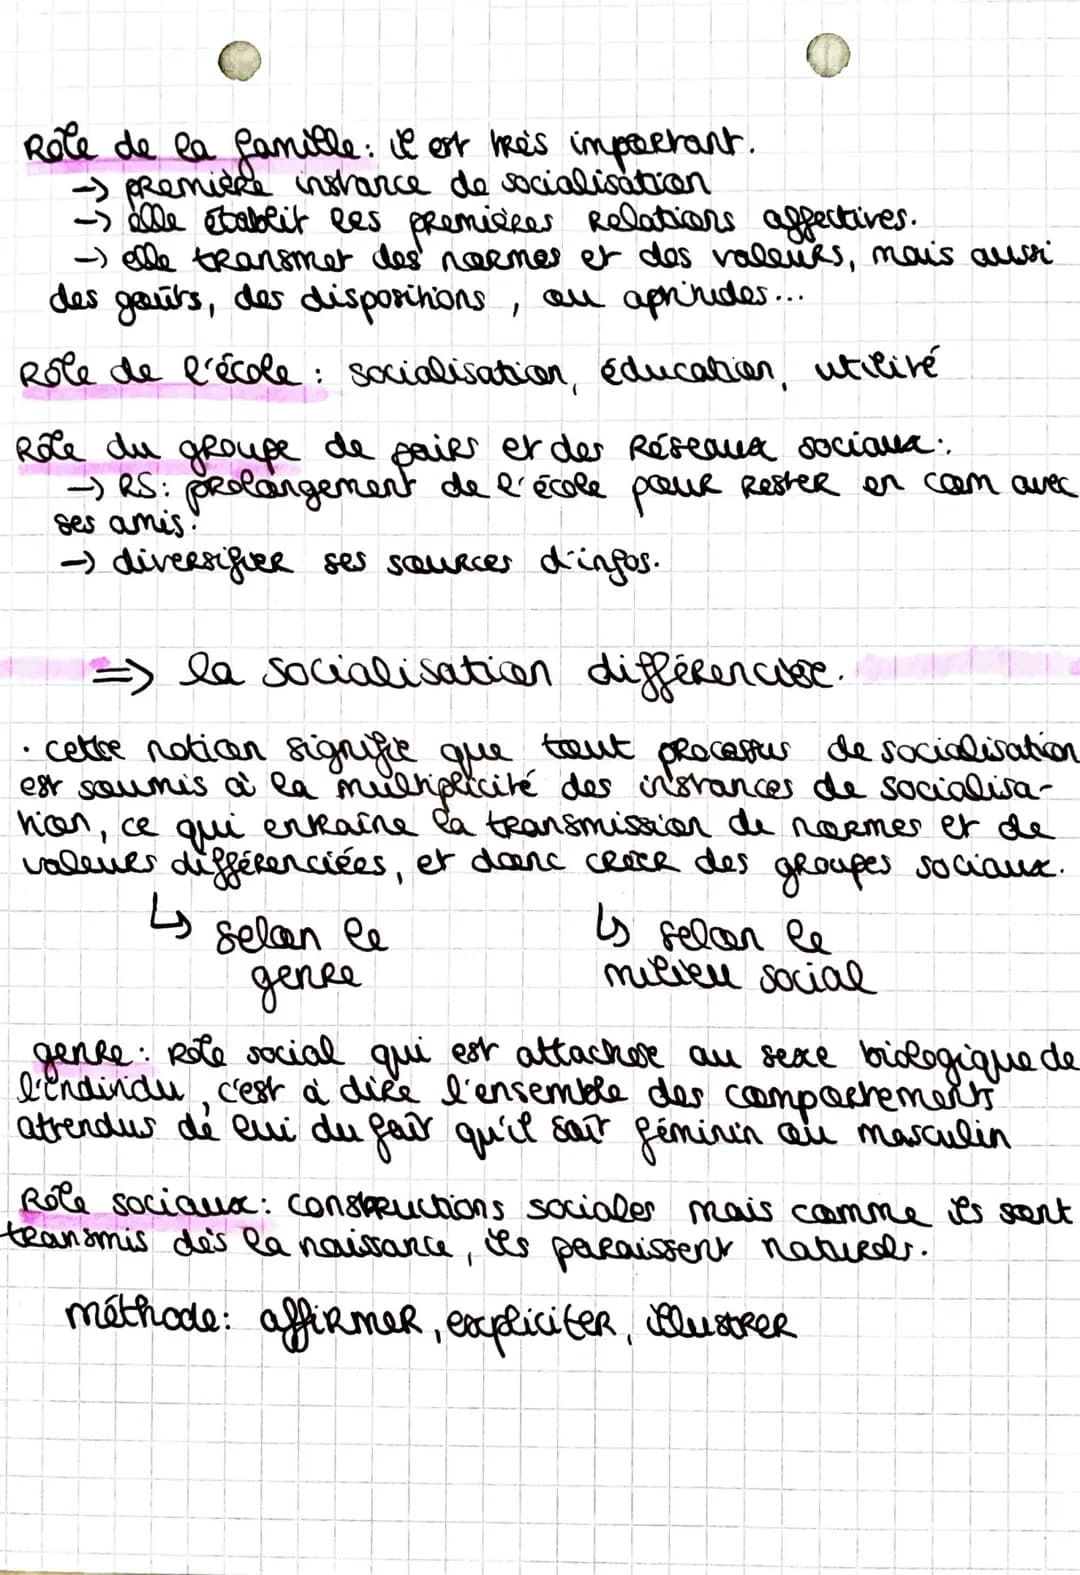 Rôle de la famille : il est très important.
→ première instance de socialisation
→ elle établit les premières relations affectives.
→ elle transmet des normes et des valeurs, mais aussi
des goûts, des dispositions, ou aptitudes...
Rôle de l'école : socialisation, éducation, utilité
Rôle du groupe de pairs et des Réseaux sociaux :
→ RS : prolongement de l'école pour rester en com avec
ses amis.
→ diversifier ses sources d'infos.
⇒ la socialisation différenciée.
· cette notion signifie que tout processus de socialisation
est soumis à la multiplicité des instances de socialisa-
tion, ce qui entraîne la transmission de normes et de
valeurs différenciées, et donc créer des groupes sociaux.
↳ selon le genre
↳ selon le milieu social
genre : rôle social qui est attachée au sexe biologique de
l'individu, c'est à dire l'ensemble des comportements
attendus de lui du fait qu'il soit féminin ou masculin
Rôle sociaux : constructions sociales mais comme ils sont
transmis dès la naissance, ils paraissent naturels.
méthode : affirmer, expliciter, illustrer